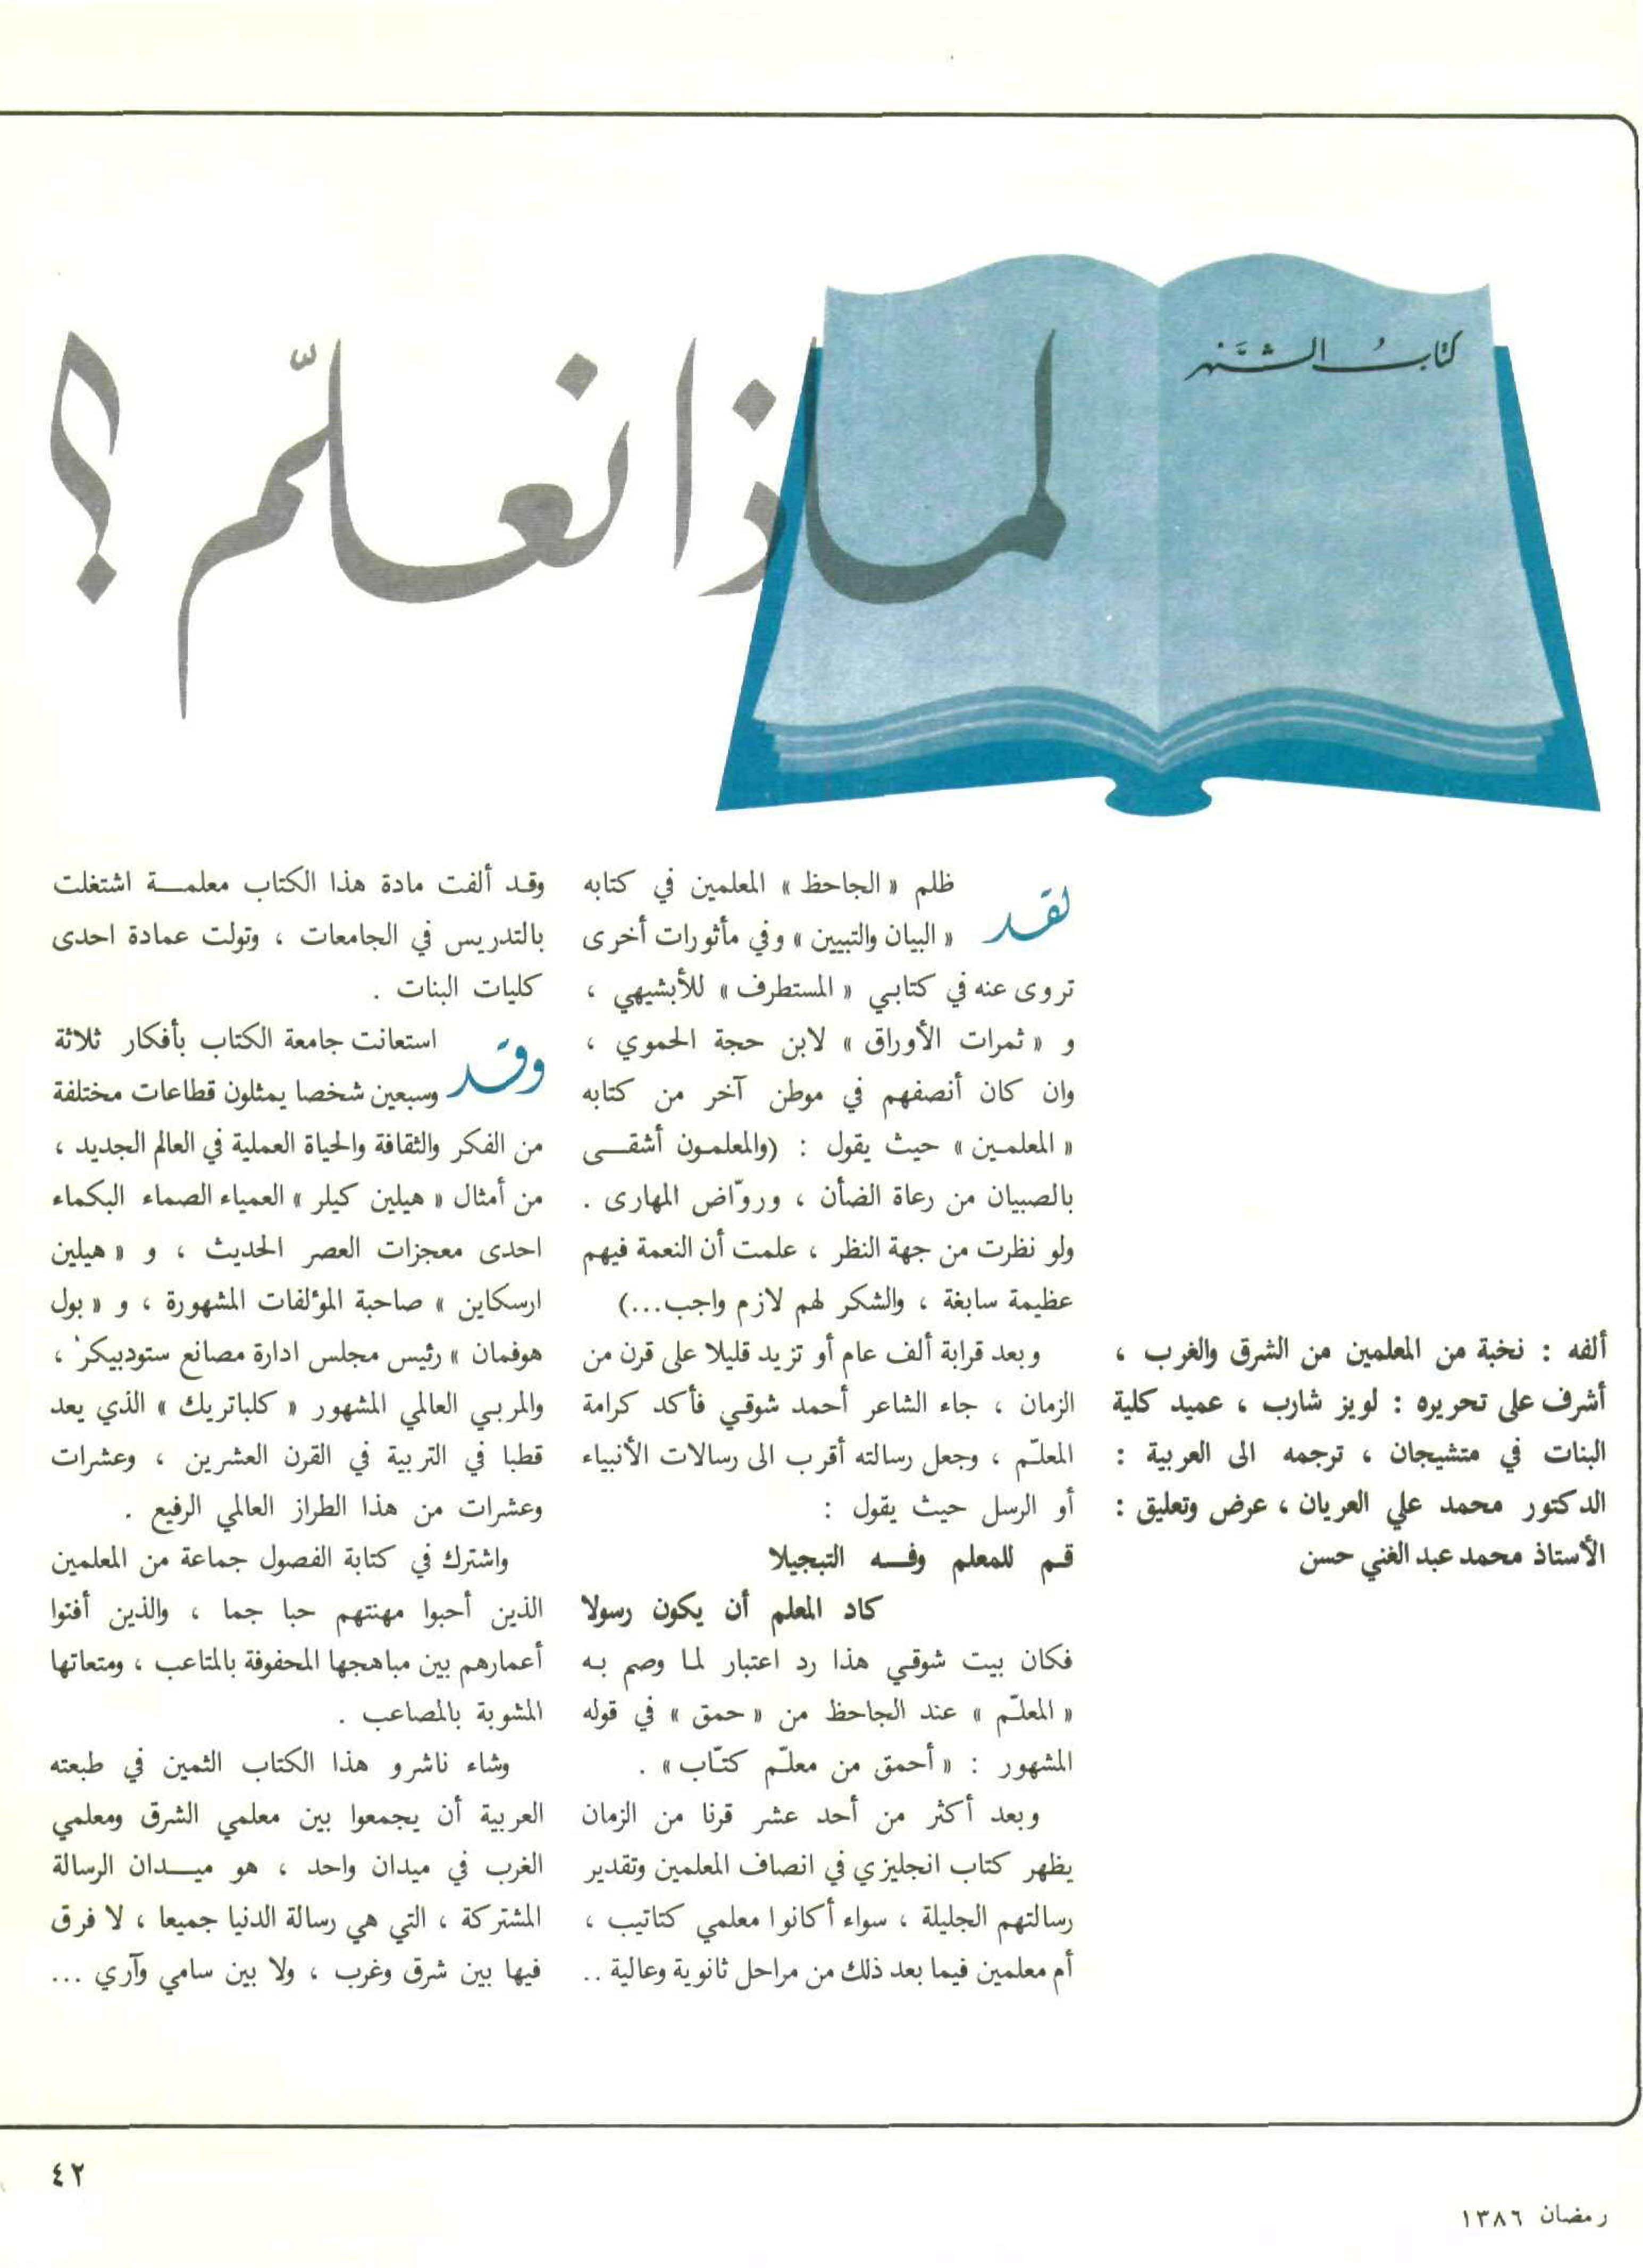 كتاب الشهر
لماذا نعلّم ؟
ألفه : نخبة من المعلمين من الشرق والغرب ،
أشرف على تحريره : لويز شارب ، عميد كلية
البنات في متشيجان ، ترجمه الى العربية :
الدكتور محمد علي العريان ، عرض وتعليق :
الأستاذ محمد عبد الغني حسن
لقد ظلم « الجاحظ » المعلمين في كتابه
« البيان والتبيين » وفي مأثورات أخرى
تروى عنه في كتابي « المستطرف » للأبشيهي ،
و « ثمرات الأوراق » لابن حجة الحموي ،
وان كان أنصفهم في موطن آخر من كتابه
« المعلمين » حيث يقول : (والمعلمون أشقى
بالصبيان من رعاة الضأن ، وروّاض المهارى .
ولو نظرت من جهة النظر ، علمت أن النعمة فيهم
عظيمة سابغة ، والشكر لهم لازم واجب...)
وبعد قرابة ألف عام أو تزيد قليلا على قرن من
الزمان ، جاء الشاعر أحمد شوقي فأكد كرامة
المعلّم ، وجعل رسالته أقرب الى رسالات الأنبياء
أو الرسل حيث يقول :
قم للمعلم وفه التبجيلا
كاد المعلم أن يكون رسولا
فكان بيت شوقي هذا رد اعتبار لما وصم به
« المعلّم » عند الجاحظ من « حمق » في قوله
المشهور : « أحمق من معلّم كتّاب » .
وبعد أكثر من أحد عشر قرنا من الزمان
يظهر كتاب انجليزي في انصاف المعلمين وتقدير
رسالتهم الجليلة ، سواء أكانوا معلمي كتاتيب ،
أم معلمين فيما بعد ذلك من مراحل ثانوية وعالية ..
وقد ألفت مادة هذا الكتاب معلمة اشتغلت
بالتدريس في الجامعات ، وتولت عمادة احدى
كليات البنات .
وقد استعانت جامعة الكتاب بأفكار ثلاثة
وسبعين شخصا يمثلون قطاعات مختلفة
من الفكر والثقافة والحياة العملية في العالم الجديد ،
من أمثال « هيلين كيلر » العمياء الصماء البكماء
احدى معجزات العصر الحديث ، و « هيلين
ارسكاين » صاحبة المؤلفات المشهورة ، و « بول
هوفمان » رئيس مجلس ادارة مصانع ستودبيكر ،
والمربي العالمي المشهور « كلباتريك » الذي يعد
قطبا في التربية في القرن العشرين ، وعشرات
وعشرات من هذا الطراز العالمي الرفيع .
واشترك في كتابة الفصول جماعة من المعلمين
الذين أحبوا مهنتهم حبا جما ، والذين أفنوا
أعمارهم بين مباهجها المحفوفة بالمتاعب ، ومتعاتها
المشوبة بالمصاعب .
وشاء ناشرو هذا الكتاب الثمين في طبعته
العربية أن يجمعوا بين معلمي الشرق ومعلمي
الغرب في ميدان واحد ، هو ميدان الرسالة
المشتركة ، التي هي رسالة الدنيا جميعا ، لا فرق
فيها بين شرق وغرب ، ولا بين سامي وآري ...
٤٢
رمضان ١٣٨٦